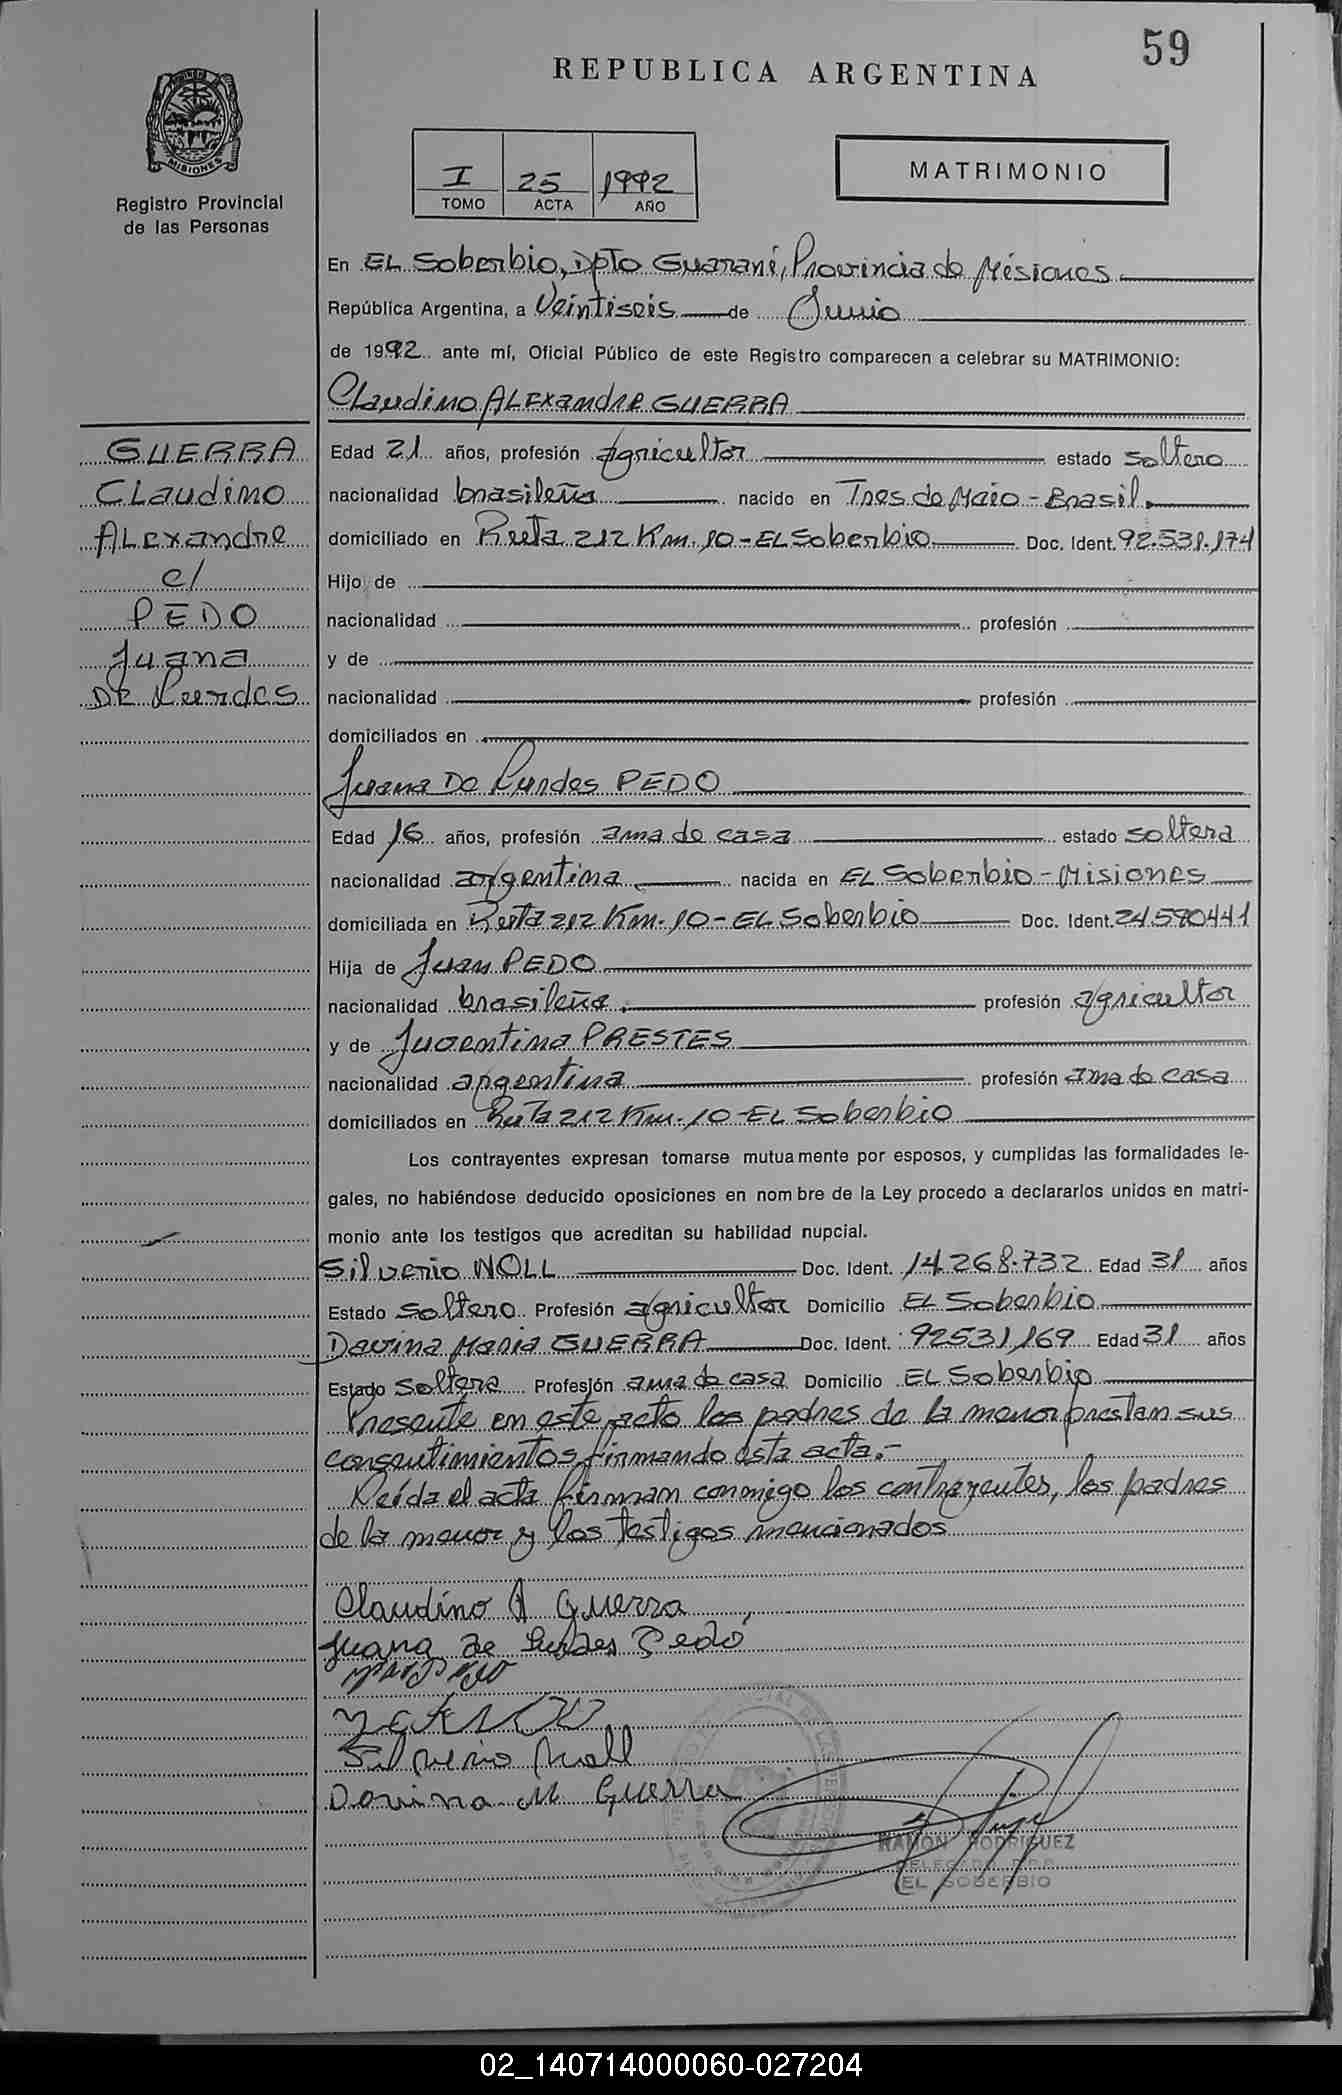 59
REPUBLICA ARGENTINA
MISIONES
Registro Provincial
de las Personas
I 25 1992
TOMO ACTA AÑO
MATRIMONIO
En EL Soberbio, Dpto Guaraní, Provincia de Misiones
República Argentina, a Veintiseis de Junio
de 1992 ante mí, Oficial Público de este Registro comparecen a celebrar su MATRIMONIO:
Claudino ALExandre GUERRA
GUERRA
Claudino
ALexandre
c/
PEDO
Juana
DE Lurdes
Edad 21 años, profesión agricultor estado soltero
nacionalidad brasileña nacido en Tres de Maio - Brasil
domiciliado en Ruta 212 Km. 10 - EL Soberbio Doc. Ident. 92.531.174
Hijo de
nacionalidad profesión
y de
nacionalidad profesión
domiciliados en
Juana De Lurdes PEDO
Edad 16 años, profesión ama de casa estado soltera
nacionalidad argentina nacida en EL Soberbio - Misiones
domiciliada en Ruta 212 Km. 10 - EL Soberbio Doc. Ident. 24.590441
Hija de Juan PEDO
nacionalidad brasileña profesión agricultor
y de Juventina PRESTES
nacionalidad argentina profesión ama de casa
domiciliados en Ruta 212 Km. 10 - EL Soberbio
Los contrayentes expresan tomarse mutuamente por esposos, y cumplidas las formalidades le-
gales, no habiéndose deducido oposiciones en nombre de la Ley procedo a declararlos unidos en matri-
monio ante los testigos que acreditan su habilidad nupcial.
Silverio NOLL Doc. Ident. 14.268.732 Edad 31 años
Estado soltero Profesión agricultor Domicilio EL Soberbio
Davina Maria GUERRA Doc. Ident. 92531,169 Edad 31 años
Estado soltera Profesión ama de casa Domicilio EL Soberbio
Presente en este acto los padres de la menor prestan sus
consentimientos firmando esta acta.-
Leída el acta firman conmigo los contrayentes, los padres
de la menor y los testigos mencionados
Claudino A Guerra
Juana de Lurdes Pedó
Silverio Noll
Davina M Guerra
RAMON RODRIGUEZ
DELEGADO R.P.P.
EL SOBERBIO
02_140714000060-027204